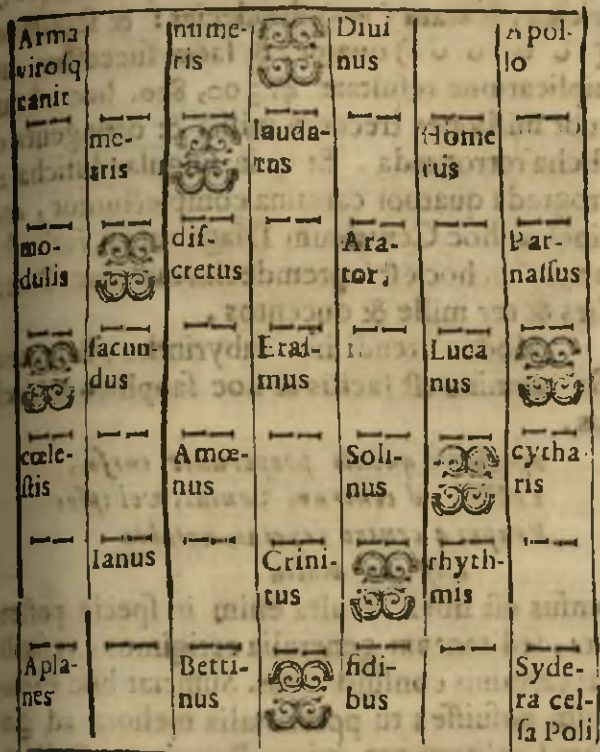 Arma numeris Diuinus Apollo
virosq
canit
metris laudatus Homerus
modulis discretus Arator, Parnassus
facundus Erasmus Lucanus
cœlestis Amœnus Solinus cytharis
Ianus Crinitus rhythmis
Aplanes Bettinus fidibus Sydera celsa Poli